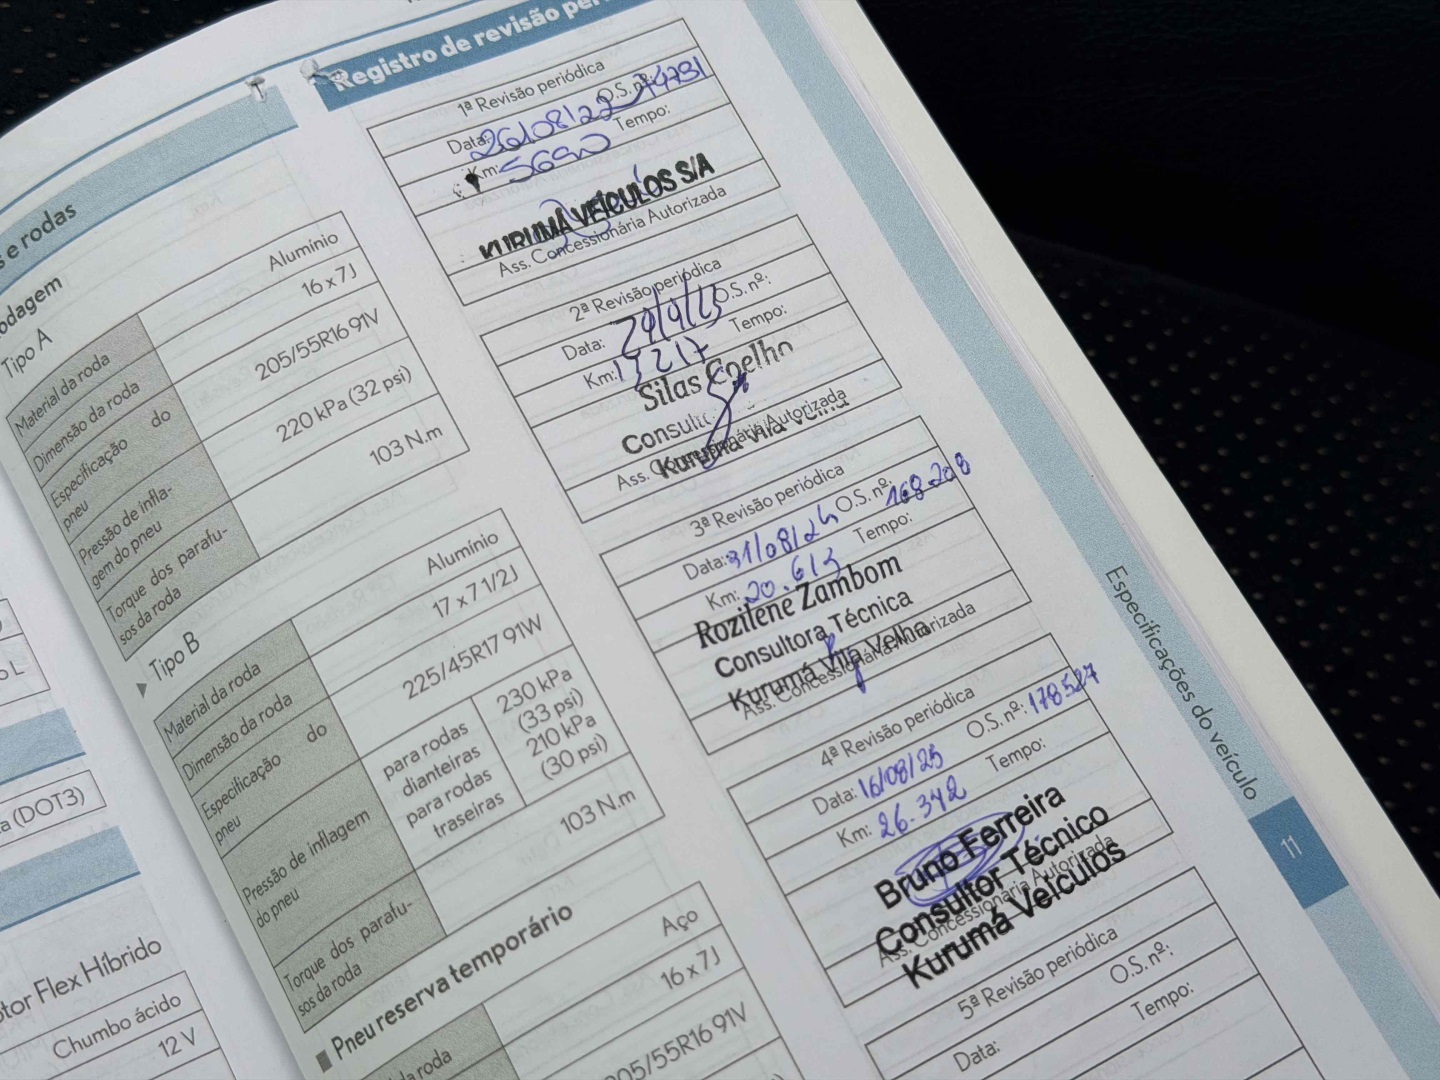 s e rodas
odagem
Tipo A
Material da roda Alumínio
Dimensão da roda 16 x 7 J
Especificação do pneu 205/55R16 91V
Pressão de infla-
gem do pneu 220 kPa (32 psi)
Torque dos parafu-
sos da roda 103 N.m
Tipo B
Material da roda Alumínio
Dimensão da roda 17 x 7 1/2J
Especificação do pneu 225/45R17 91W
Pressão de inflagem do pneu
para rodas dianteiras 230 kPa (33 psi)
para rodas traseiras 210 kPa (30 psi)
Torque dos parafu-
sos da roda 103 N.m
Pneu reserva temporário
Aço
16 x 7 J
205/55R16 91V
a (DOT3)
otor Flex Híbrido
Chumbo ácido
12 V
Registro de revisão
1ª Revisão periódica
Data: 26/08/22 O.S. nº: 74791
Km: 5690 Tempo:
KURUMÁ VEÍCULOS S/A
Ass. Concessionária Autorizada
2ª Revisão periódica
Data: 29/9/23 O.S. nº:
Km: 13217 Tempo:
Silas Coelho
Kurumá Vila Velha
Ass. Concessionária Autorizada
3ª Revisão periódica
Data: 31/08/24 O.S. nº: 168208
Km: 20.613 Tempo:
Rozilene Zambom
Consultora Técnica
Kurumá Vila Velha
Ass. Concessionária Autorizada
4ª Revisão periódica
Data: 16/08/25 O.S. nº: 178527
Km: 26.342 Tempo:
Bruno Ferreira
Consultor Técnico
Ass. Concessionária Autorizada
Kurumá Veículos
5ª Revisão periódica
Data: O.S. nº:
Tempo:
Especificações do veículo
11